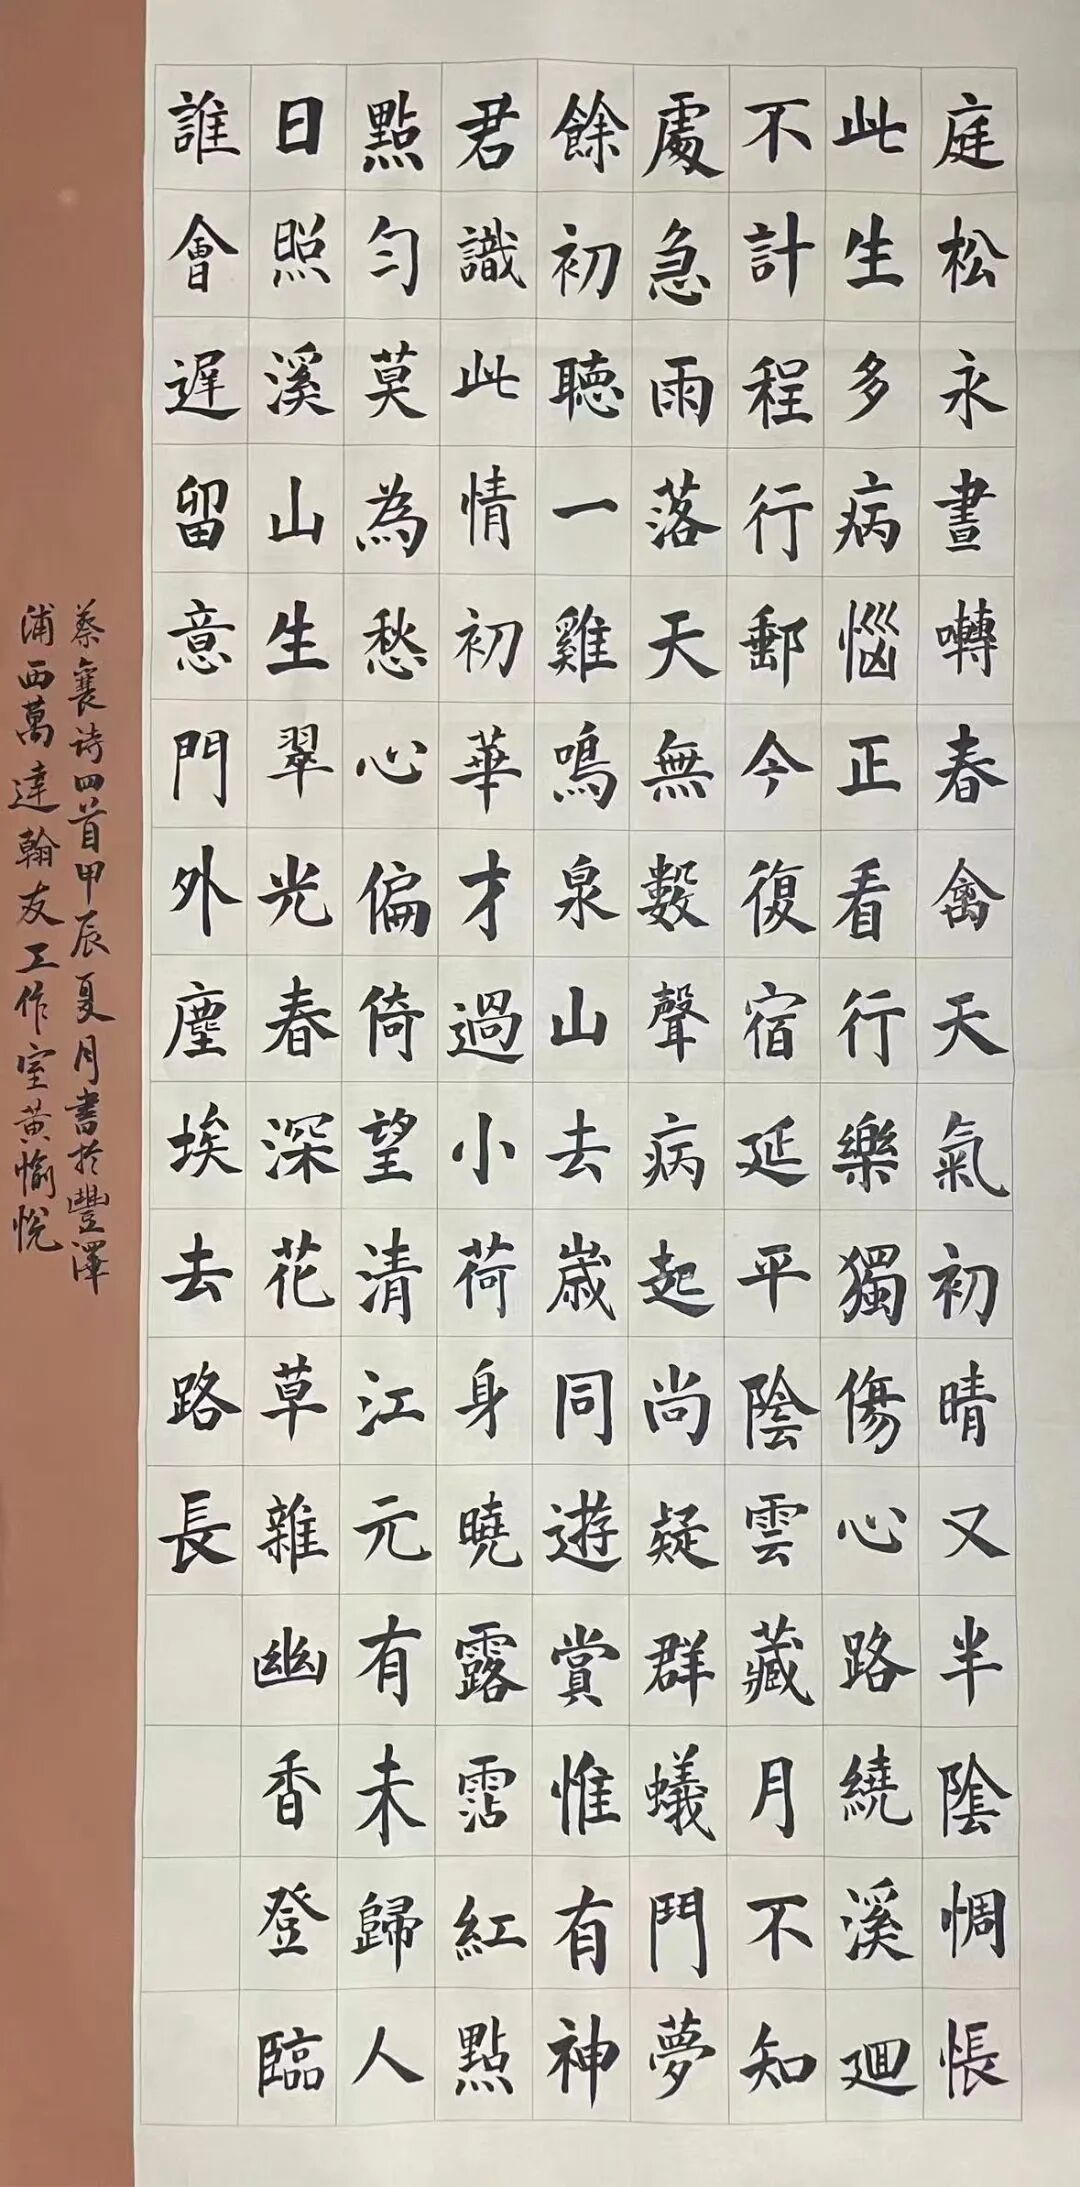 庭松永晝囀春禽天氣初晴又半陰惆悵
此生多病惱正看行樂獨傷心路繞溪廻
不計程行郵今復宿延平陰雲藏月不知
處急雨落天無數聲病起尚疑群蟻鬥夢
餘初聽一雞鳴泉山去嵗同遊賞惟有神
君識此情初華才過小荷身曉露霑紅點
點勻莫為愁心偏倚望清江元有未歸人
日照溪山生翠光春深花草雜幽香登臨
誰會遲留意門外塵埃去路長
蔡襄诗四首甲辰夏月書於豐澤
浦西萬達翰友工作室黃愉悅